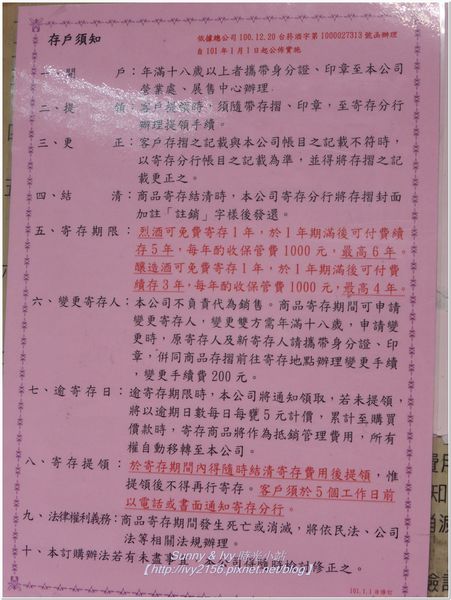 存戶須知
依據總公司100.12.20台菸酒字第1000027313號函辦理
自101年1月1日起公佈實施
一、開 戶：年滿十八歲以上者攜帶身分證、印章至本公司
營業處、展售中心辦理。
二、提 領：客戶提領時，須隨帶存摺、印章，至寄存分行
辦理提領手續。
三、更 正：客戶存摺之記載與本公司帳目之記載不符時，
以寄存分行帳目之記載為準，並得將存摺之記
載更正之。
四、結 清：商品寄存結清時，本公司寄存分行將存摺封面
加註「註銷」字樣後發還。
五、寄存期限：烈酒可免費寄存1年，於1年期滿後可付費續
存5年，每年酌收保管費1000元，最高6年。
釀造酒可免費寄存1年，於1年期滿後可付費
續存3年，每年酌收保管費1000元，最高4年。
六、變更寄存人：本公司不負責代為銷售。商品寄存期間可申請
變更寄存人，變更雙方需年滿十八歲，申請變
更時，原寄存人及新寄存人請攜帶身分證、印
章，併同商品存摺前往寄存地點辦理變更手續
，變更手續費200元。
七、逾寄存日：逾寄存期限時，本公司將通知領取，若未提領，
將以逾期日數每日每甕5元計價，累計至購買
價款時，寄存商品將作為抵銷管理費用，所有
權自動移轉至本公司。
八、寄存提領：於寄存期間內得隨時結清寄存費用後提領，惟
提領後不得再行寄存。客戶須於5個工作日前
以電話或書面通知寄存分行。
九、法律權利義務：商品寄存期間發生死亡或消滅，將依民法、公司
法等相關法規辦理。
十、本訂購辦法若有未盡事宜，本公司保留隨時檢討修正之。
Sunny & Ivy 時光小站
【http://ivy2156.pixnet.net/blog】
101.1.1修訂
費用
知
消滅